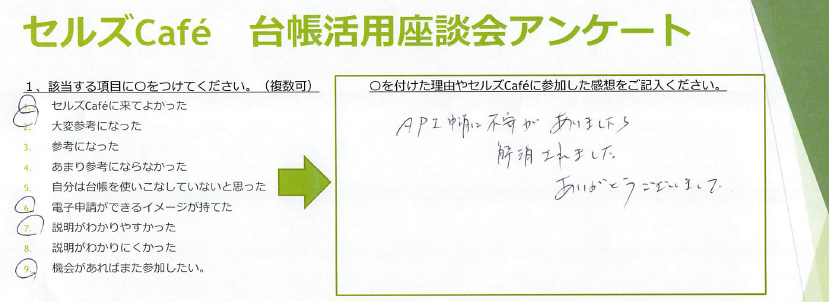 セルズCafé 台帳活用座談会アンケート
1、該当する項目に○をつけてください。（複数可）
1. セルズCaféに来てよかった
2. 大変参考になった
3. 参考になった
4. あまり参考にならなかった
5. 自分は台帳を使いこなしていないと思った
6. 電子申請ができるイメージが持てた
7. 説明がわかりやすかった
8. 説明がわかりにくかった
9. 機会があればまた参加したい。
○を付けた理由やセルズCaféに参加した感想をご記入ください。
API申請に不安がありましたら
解消されました
ありがとうございまして